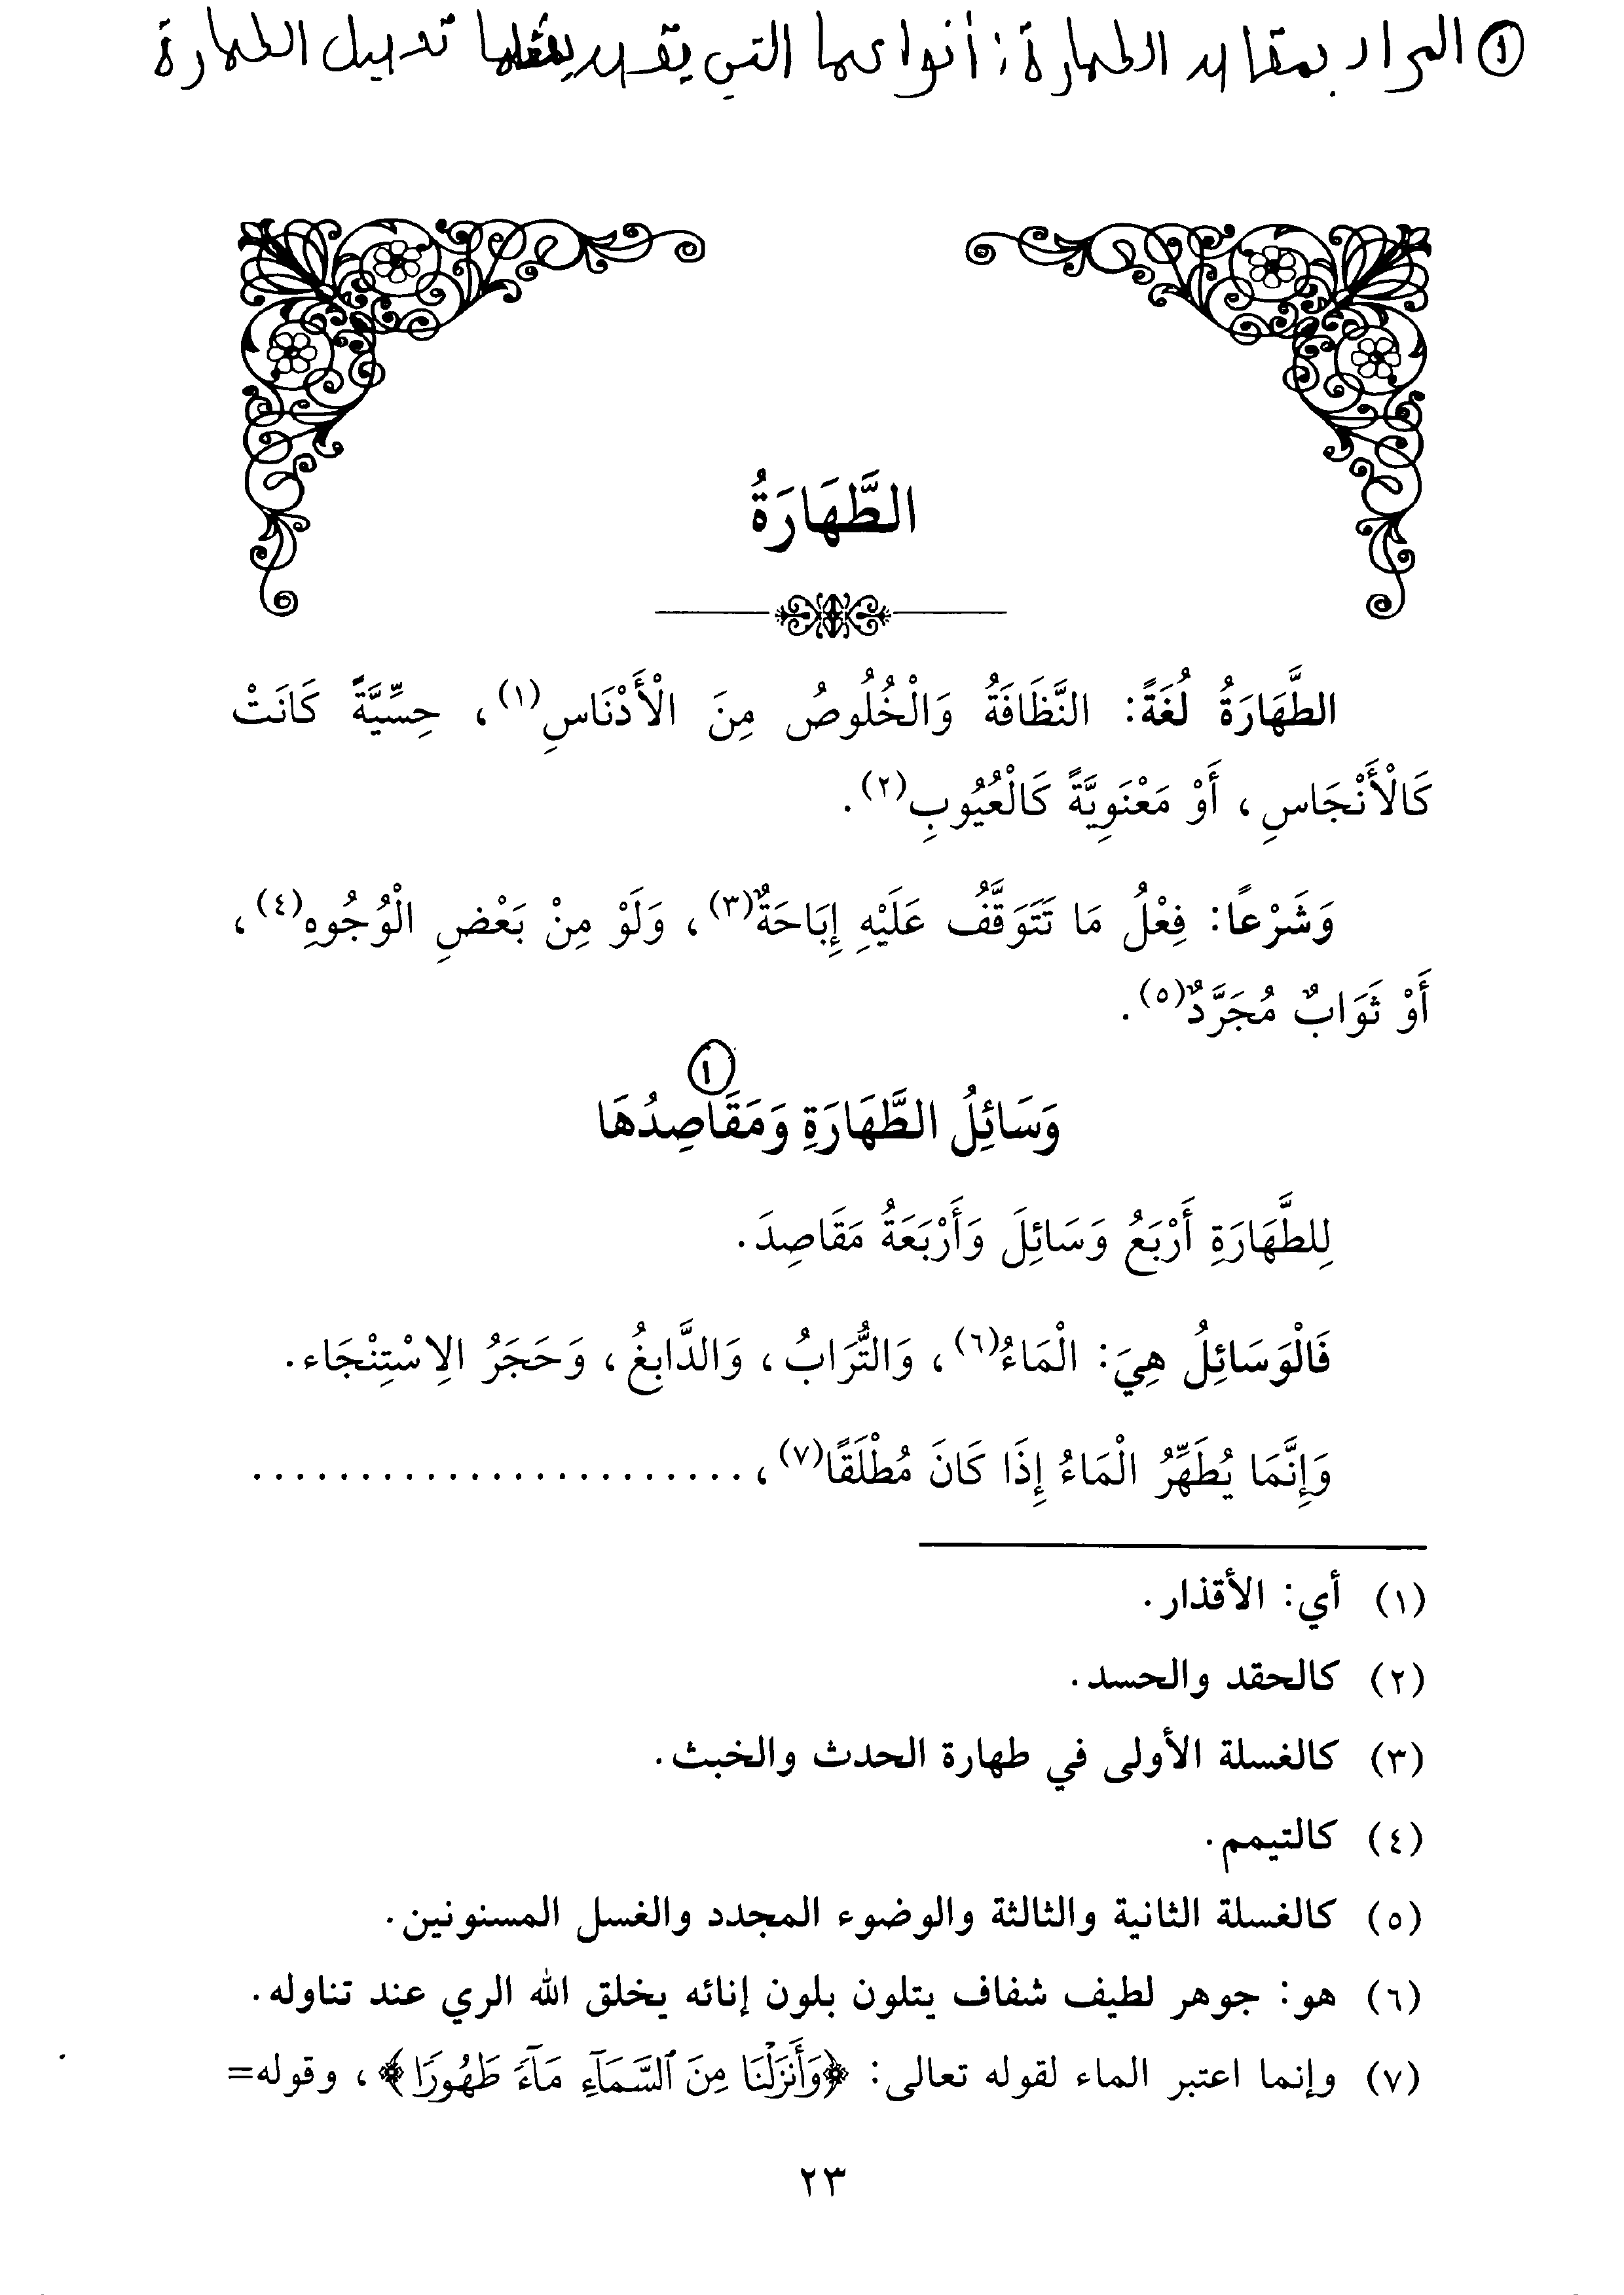 ① المراد بمقاصد الطهارة: أنواعها التي يقصد بفعلها تحصيل الطهارة
الطَّهَارَةُ
الطَّهَارَةُ لُغَةً: النَّظَافَةُ وَالْخُلُوصُ مِنَ الْأَدْنَاسِ(١)، حِسِّيَّةً كَانَتْ
كَالْأَنْجَاسِ، أَوْ مَعْنَوِيَّةً كَالْعُيُوبِ(٢).
وَشَرْعًا: فِعْلُ مَا تَتَوَقَّفُ عَلَيْهِ إِبَاحَةٌ(٣)، وَلَوْ مِنْ بَعْضِ الْوُجُوهِ(٤)،
أَوْ ثَوَابٌ مُجَرَّدٌ(٥).
①
وَسَائِلُ الطَّهَارَةِ وَمَقَاصِدُهَا
لِلطَّهَارَةِ أَرْبَعُ وَسَائِلَ وَأَرْبَعَةُ مَقَاصِدَ.
فَالْوَسَائِلُ هِيَ: الْمَاءُ(٦)، وَالتُّرَابُ، وَالدَّابِغُ، وَحَجَرُ الِاسْتِنْجَاء.
وَإِنَّمَا يُطَهِّرُ الْمَاءُ إِذَا كَانَ مُطْلَقًا(٧)، . . . . . . . . . . . . . . . . . . . . . . .
(١) أي: الأقذار.
(٢) كالحقد والحسد.
(٣) كالغسلة الأولى في طهارة الحدث والخبث.
(٤) كالتيمم.
(٥) كالغسلة الثانية والثالثة والوضوء المجدد والغسل المسنونين.
(٦) هو: جوهر لطيف شفاف يتلون بلون إنائه يخلق الله الري عند تناوله.
(٧) وإنما اعتبر الماء لقوله تعالى: ﴿وَأَنزَلْنَا مِنَ ٱلسَّمَآءِ مَآءً طَهُورًا﴾، وقوله=
٢٣